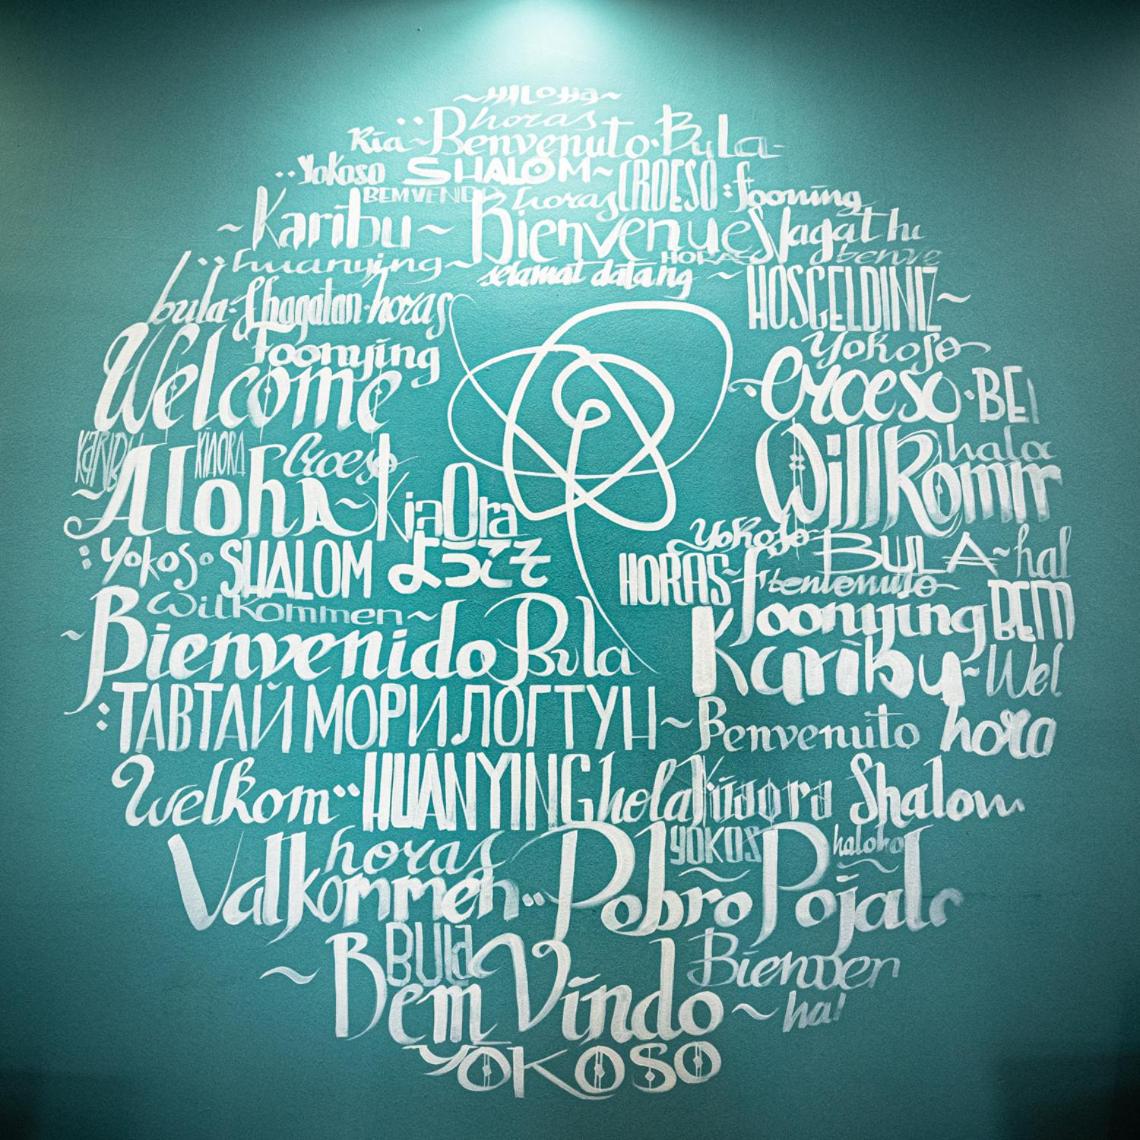 ~ALOHA~
horas
Kia~Benvenuto·Bula-
Yokoso SHALOM~
BEMVENDO horas CROESO:fooning
~Karibu~ Bienvenue
HORAS benve
~huanying~ selamat datang ~ HOSGELDINIZ~
bula·Shagatan·horas
foonying Yokoso
Welcome ~Croeso·BEI
KARIBU KIAORA Croeso haloc
~Aloha~KiaOra Willkomm
Yokoso
:Yokoso SHALOM ようこそ HORAS~ BULA~hal
Willkommen~ benvenuto
~Bienvenido Bula foonying BEM
Karibu~Wel
:ТАВТАЙ МОРИЛОГТУН~Benvenuto hora
Welkom HUANYING hola Kiaora Shalom
horas YOKOS haloha
Valkommen Pobro Pojalo
BULA Bienven
~Bem Vindo~ha!
YOKOSO